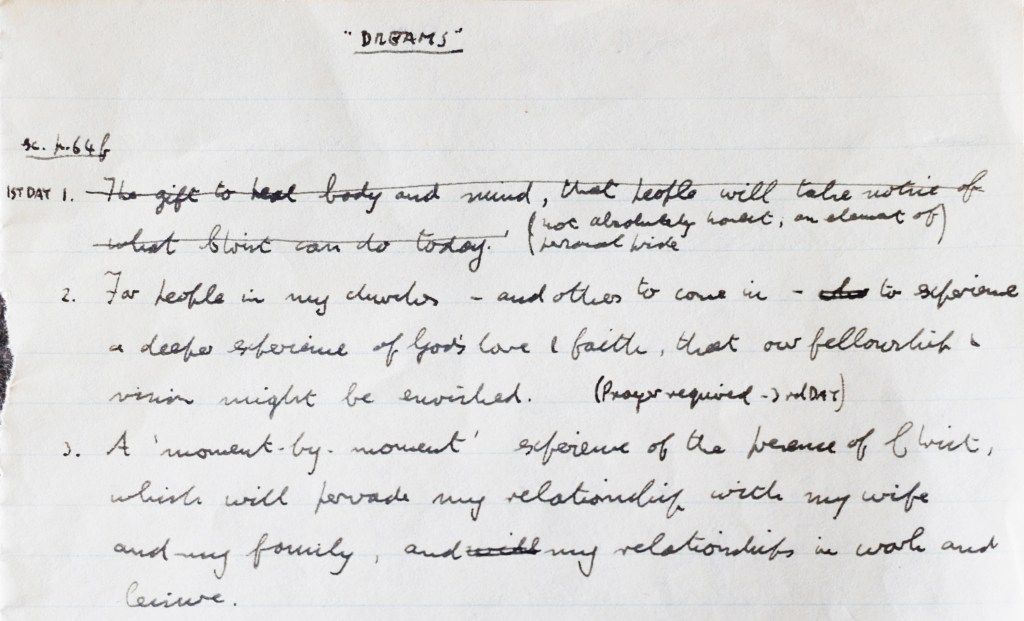 "DREAMS"
sc. p. 64f
1ST DAY 1. The gift to heal body and mind, that people will take notice of
what Christ can do today. (not absolutely honest; an element of)
personal pride
2. For people in my churches - and others to come in - to experience
a deeper experience of God's love & faith, that our fellowship &
vision might be enriched. (Prayer required -> 3rd DAY)
3. A 'moment-by-moment' experience of the presence of Christ,
which will pervade my relationship with my wife
and my family, and will my relationships in work and
leisure.